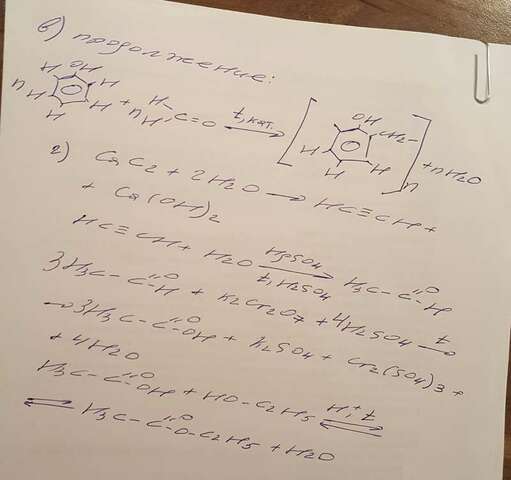 в) продолжение:
H OH H H H H n + n H H C=O t, кат. → [ OH CH2– H H H ]n + nH2O
г) CaC2 + 2H2O → HC≡CH +
+ Ca(OH)2
HC≡CH + H2O HgSO4 t, H2SO4 → H3C–C=O –H
3H3C–C=O –H + K2Cr2O7 + 4H2SO4 t →
→ 3H3C–C=O –OH + K2SO4 + Cr2(SO4)3 +
+ 4H2O
H3C–C=O –OH + HO–C2H5 H+, t ⇌
⇌ H3C–C=O –O–C2H5 + H2O